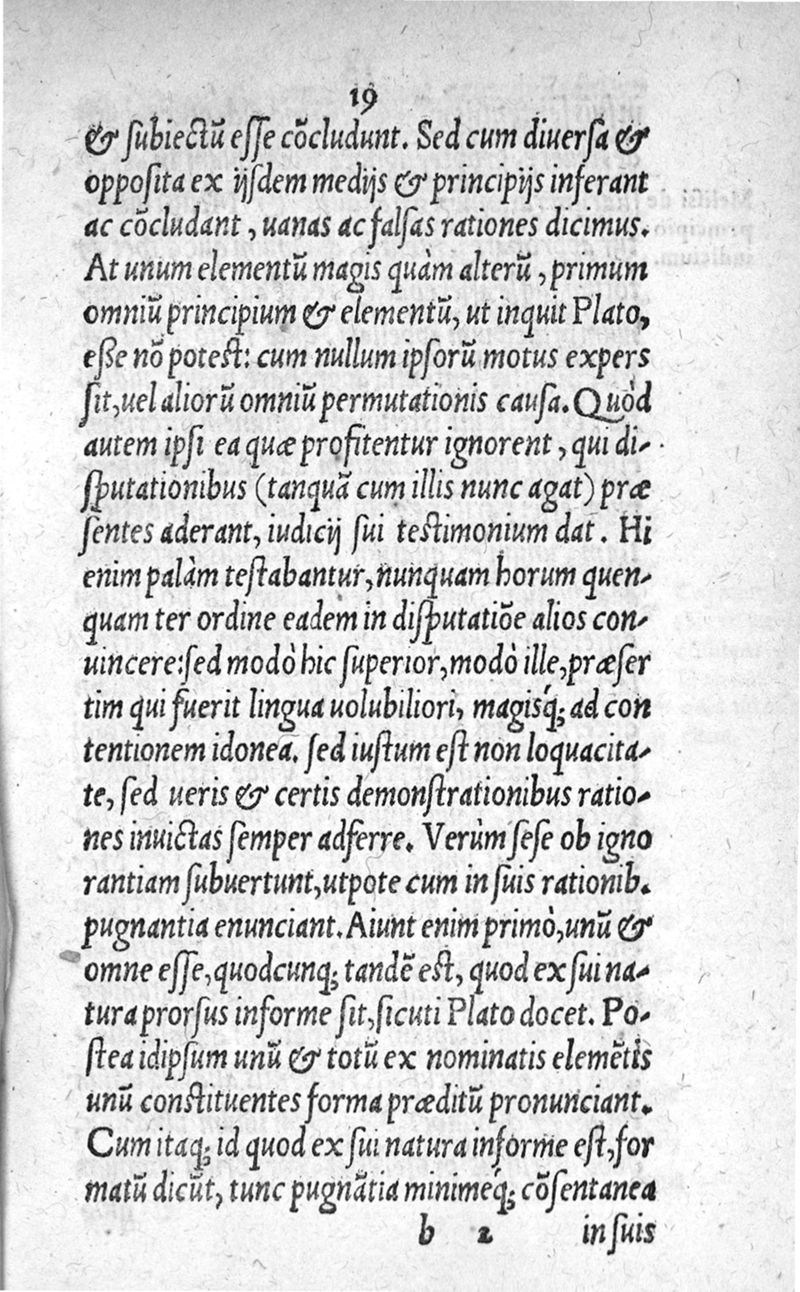 19
& ſubiectũ eſſe cõcludunt. Sed cum diuerſa &
oppoſita ex ijſdem medijs & principijs inferant
ac cõcludant, uanas ac falſas rationes dicimus.
At unum elementũ magis quàm alterũ, primum
omniũ principium & elementũ, ut inquit Plato,
eſſe nõ poteſt: cum nullum ipſorũ motus expers
ſit, uel aliorũ omniũ permutationis cauſa. Quòd
autem ipſi ea quæ profitentur ignorent, qui di-
ſputationibus (tanquã cum illis nunc agat) præ
ſentes aderant, iudicij ſui teſtimonium dat. Hi
enim palàm teſtabantur, nunquam horum quen-
quam ter ordine eadem in diſputatiõe alios con-
uincere: ſed modò hic ſuperior, modò ille, præſer
tim qui fuerit lingua uolubiliori, magisq́; ad con
tentionem idonea. ſed iuſtum eſt non loquacita-
te, ſed ueris & certis demonſtrationibus ratio-
nes inuictas ſemper adferre. Verùm ſeſe ob igno
rantiam ſubuertunt, utpote cum in ſuis rationib.
pugnantia enunciant. Aiunt enim primò, unũ &
omne eſſe, quodcunq; tandẽ eſt, quod ex ſui na-
tura prorſus informe ſit, ſicuti Plato docet. Po-
ſtea idipſum unũ & totũ ex nominatis elemẽtis
unũ conſtituentes forma præditũ pronunciant.
Cum itaq; id quod ex ſui natura informe eſt, for
matũ dicũt, tunc pugnãtia minimeq́; cõſentanea
b 2 in ſuis